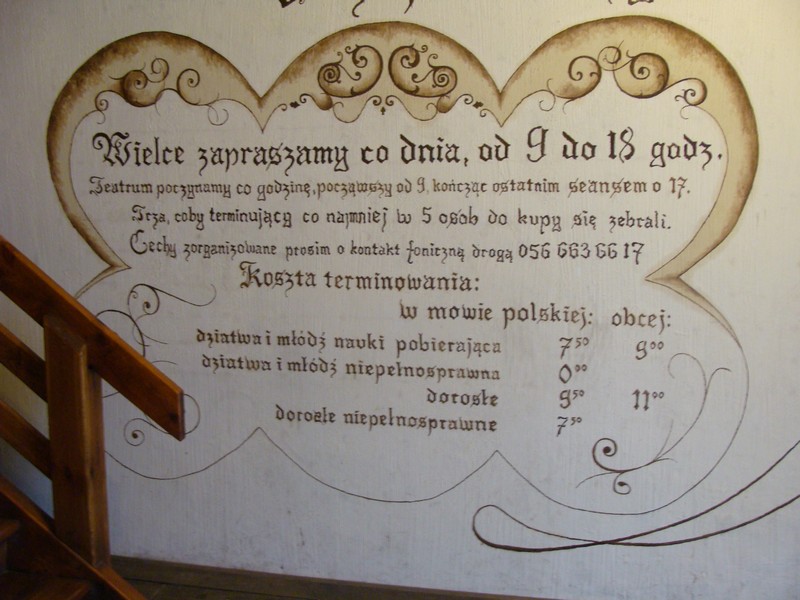 Wielce zapraszamy co dnia, od 9 do 18 godz.
Teatrum poczynamy co godzinę, począwszy od 9, kończąc ostatnim seansem o 17.
Trza, coby terminujący co najmniej w 5 osób do kupy się zebrali.
Cechy zorganizowane prosim o kontakt foniczną drogą 056 663 66 17
Koszta terminowania:
w mowie polskiej: obcej:
dziatwa i młódź nauki pobierająca 7⁵⁰ 9⁰⁰
dziatwa i młódź niepełnosprawna 0⁰⁰
dorosłe 9⁵⁰ 11⁰⁰
dorosłe niepełnosprawne 7⁵⁰